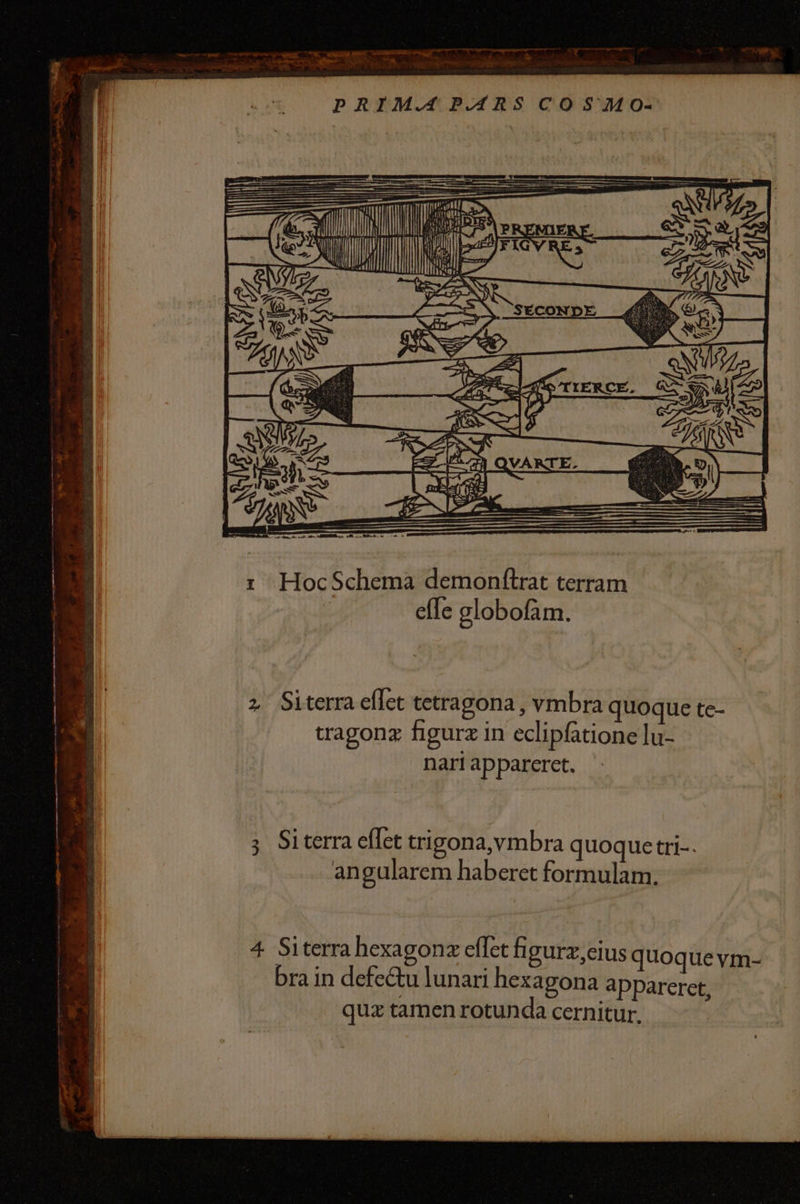 PRIMA PARS COSMO-
PREMIERE
FIGVRE,
SECONDE
TIERCE.
QVARTE.
1 Hoc Schema demonſtrat terram
eſſe globoſam.
2 Si terra eſſet tetragona, vmbra quoque te-
tragonæ figuræ in eclipſatione lu-
nari appareret.
3 Si terra eſſet trigona, vmbra quoque tri-
angularem haberet formulam.
4 Si terra hexagonæ eſſet figuræ, eius quoque vm-
bra in defectu lunari hexagona appareret,
quæ tamen rotunda cernitur.